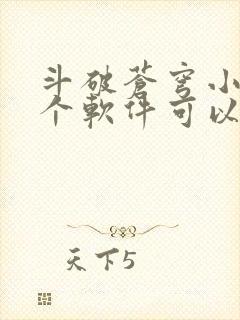 斗破苍穹小
个软件可以
天下5